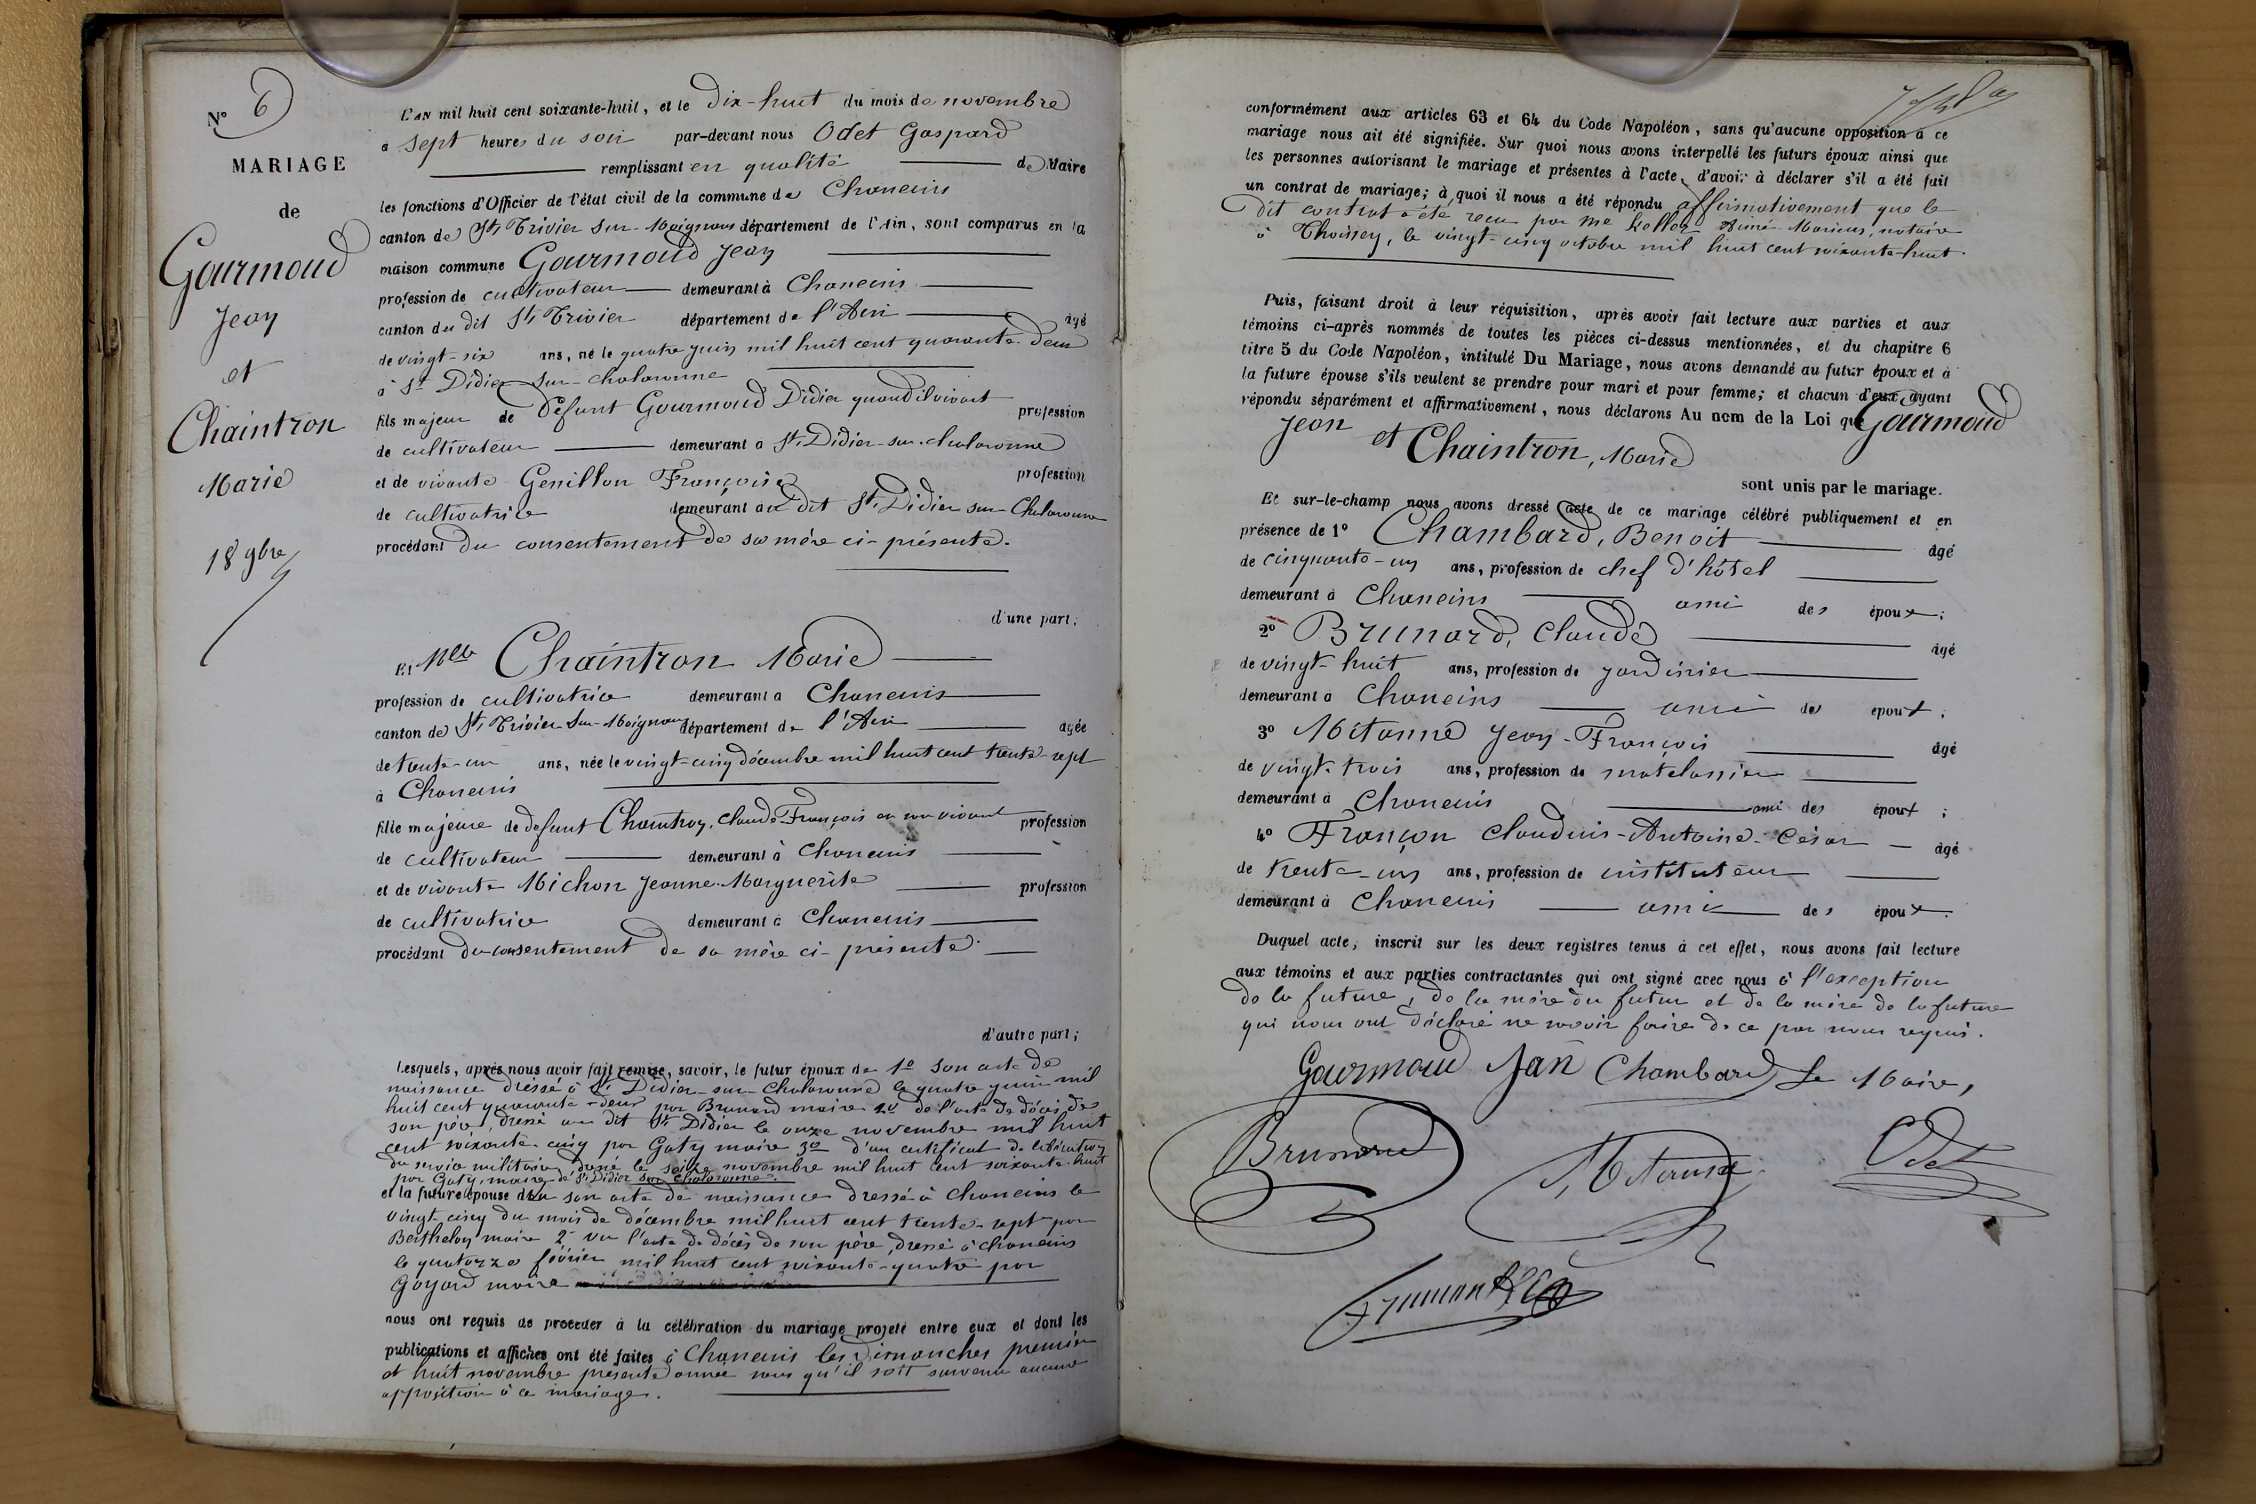 N° 6
MARIAGE
de
Gourmoud
Jean
et
Chaintron
Marie
18 9bre
L'an mil huit cent soixante-huit, et le Dix-huit du mois de novembre
à sept heures du soir par-devant nous Odet Gaspard
remplissant en qualité de Maire
les fonctions d'Officier de l'état civil de la commune de Chaneins
canton de St Trivier sur-Moignans département de l'Ain, sont comparus en la
maison commune Gourmoud Jean
profession de cultivateur demeurant à Chaneins
canton du dit St Trivier département de l'Ain âgé
de vingt-six ans, né le quatre juin mil huit cent quarante-deux
à St Didier sur-chalaronne
fils majeur de Défunt Gourmoud Didier quand il vivait profession
de cultivateur demeurant à St Didier-sur-chalaronne
et de vivante Genillon Françoise profession
de cultivatrice demeurant au dit St Didier sur Chalaronne
procédant du consentement de sa mère ci-présente.
d'une part;
Et Mlle Chaintron Marie
profession de cultivatrice demeurant à Chaneins
canton de St Trivier sur-Moignans département de l'Ain agée
de trente-un ans, née le vingt-cinq décembre mil huit cent trente-sept
à Chaneins
fille majeure de defunt Chaintron, Claude-François en son vivant profession
de cultivateur demeurant à Chaneins
et de vivante Michon Jeanne-Marguerite profession
de cultivatrice demeurant à Chaneins
procédant du consentement de sa mère ci-présente.
d'autre part;
Lesquels, après nous avoir fait remise, savoir, le futur époux de 1° son acte de
naissance dressé à St Didier-sur-Chalaronne le quatre juin mil
huit cent quarante-deux par Brunard maire 2° de l'acte de décès de
son père, dressé au dit St Didier le onze novembre mil huit
cent soixante-cinq par Gaty maire 3° d'un certificat de libération
du service militaire, donné le seize novembre mil huit cent soixante-huit
par Gaty, maire de St Didier sur chalaronne.
et la future épouse de son acte de naissance dressé à Chaneins le
vingt-cinq du mois de décembre mil huit cent trente-sept par
Berthelon maire 2° vu l'acte de décès de son père, dressé à chaneins
le quatorze février mil huit cent soixante-quatre par
Goyard maire
nous ont requis de procéder à la célébration du mariage projeté entre eux et dont les
publications et affiches ont été faites à Chaneins les Dimanches premier
et huit novembre présente année sans qu'il soit survenu aucune
opposition à ce mariage.
conformément aux articles 63 et 64 du Code Napoléon, sans qu'aucune opposition à ce
mariage nous ait été signifiée. Sur quoi nous avons interpellé les futurs époux ainsi que
les personnes autorisant le mariage et présentes à l'acte, d'avoir à déclarer s'il a été fait
un contrat de mariage; à quoi il nous a été répondu affirmativement que le
dit contrat a été reçu par me Keller Aimé-Marius, notaire
à Thoissey, le vingt-cinq octobre mil huit cent soixante-huit.
Puis, faisant droit à leur réquisition, après avoir fait lecture aux parties et aux
témoins ci-après nommés de toutes les pièces ci-dessus mentionnées, et du chapitre 6
titre 5 du Code Napoléon, intitulé Du Mariage, nous avons demandé au futur époux et à
la future épouse s'ils veulent se prendre pour mari et pour femme; et chacun d'eux ayant
répondu séparément et affirmativement, nous déclarons Au nom de la Loi que Gourmoud
Jean et Chaintron, Marie
sont unis par le mariage.
Et sur-le-champ nous avons dressé acte de ce mariage célébré publiquement et en
présence de 1° Chambard, Benoit âgé
de cinquante-un ans, profession de chef d'hôtel
demeurant à Chaneins ami des époux;
2° Brunard, Claude âgé
de vingt-huit ans, profession de jardinier
demeurant à Chaneins ami des époux;
3° Mitanne Jean-François âgé
de vingt-trois ans, profession de matelassier
demeurant à Chaneins ami des époux;
4° Françon Claudius-Antoine-César âgé
de trente-un ans, profession de instituteur
demeurant à Chaneins ami des époux.
Duquel acte, inscrit sur les deux registres tenus à cet effet, nous avons fait lecture
aux témoins et aux parties contractantes qui ont signé avec nous à l'exception
de la future, de la mère du futur et de la mère de la future
qui nous ont déclaré ne savoir faire de ce par nous requis.
Gourmoud Jan Chambard Le Maire,
Brunard Mitanne Odet